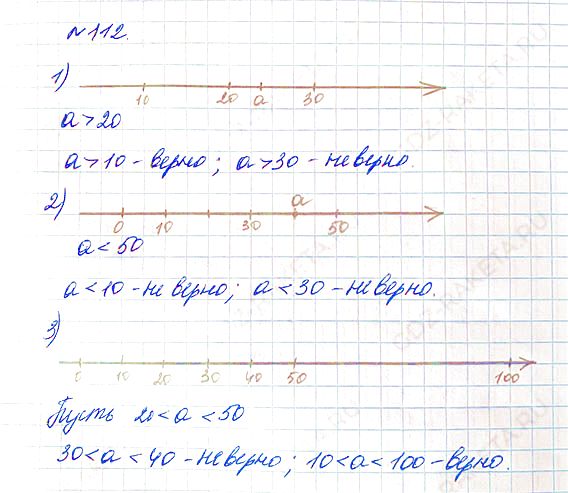 №112.
1)
10 20 a 30
a > 20
a > 10 - верно; a > 30 - неверно.
2)
a
0 10 30 50
a < 50
a < 10 - неверно; a < 30 - неверно.
3)
0 10 20 30 40 50 100
Пусть 20 < a < 50
30 < a < 40 - неверно; 10 < a < 100 - верно.
GDZ-RAKETA.RU